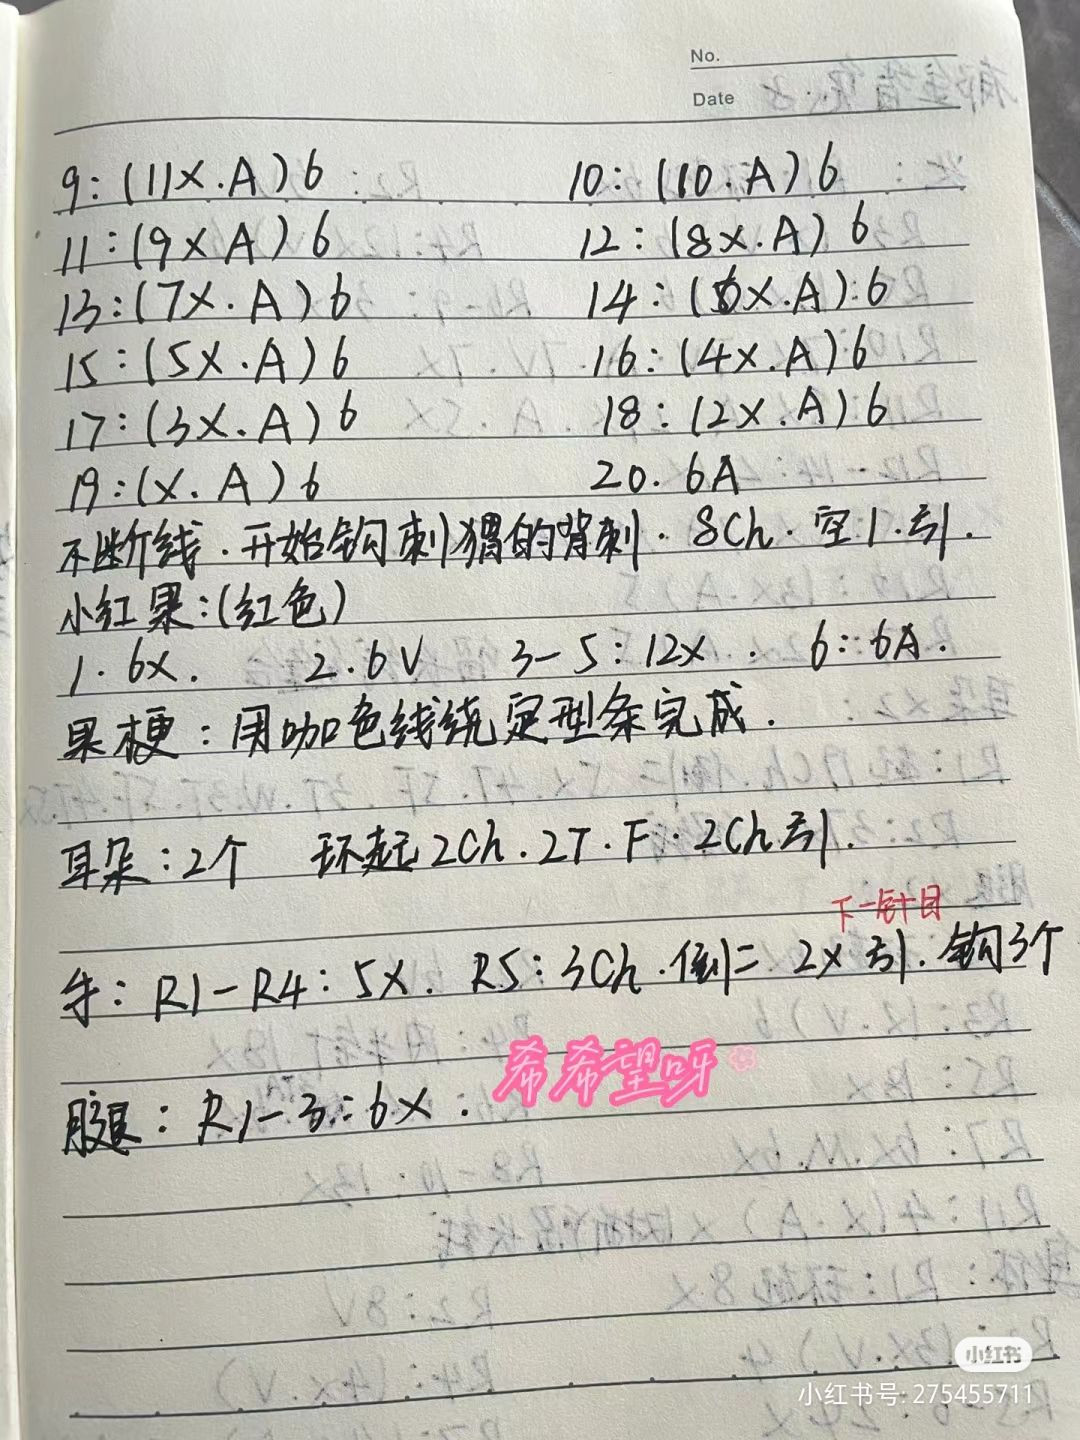 No.
Date
9:(11X.A)6 10:(10.A)6
11:(9XA)6 12:(8X.A)6
13:(7X.A)6 14:(6X.A).6
15:(5X.A)6 16:(4X.A)6
17:(3X.A)6 18:(2X.A)6
19:(X.A)6 20.6A
不断线.开始钩刺猬的背刺.8Ch.空1.引.
小红果:(红色)
1.6X. 2.6V 3-5:12X. 6:6A.
果梗:用咖色线绕定型条完成.
耳朵:2个 环起2Ch.2T.F.2Ch.引.
下一针目
手:R1-R4:5X. R5:3Ch.倒二 2X引.钩3个
希希望呀
腿:R1-3:6X.
小红书
小红书号:275455711